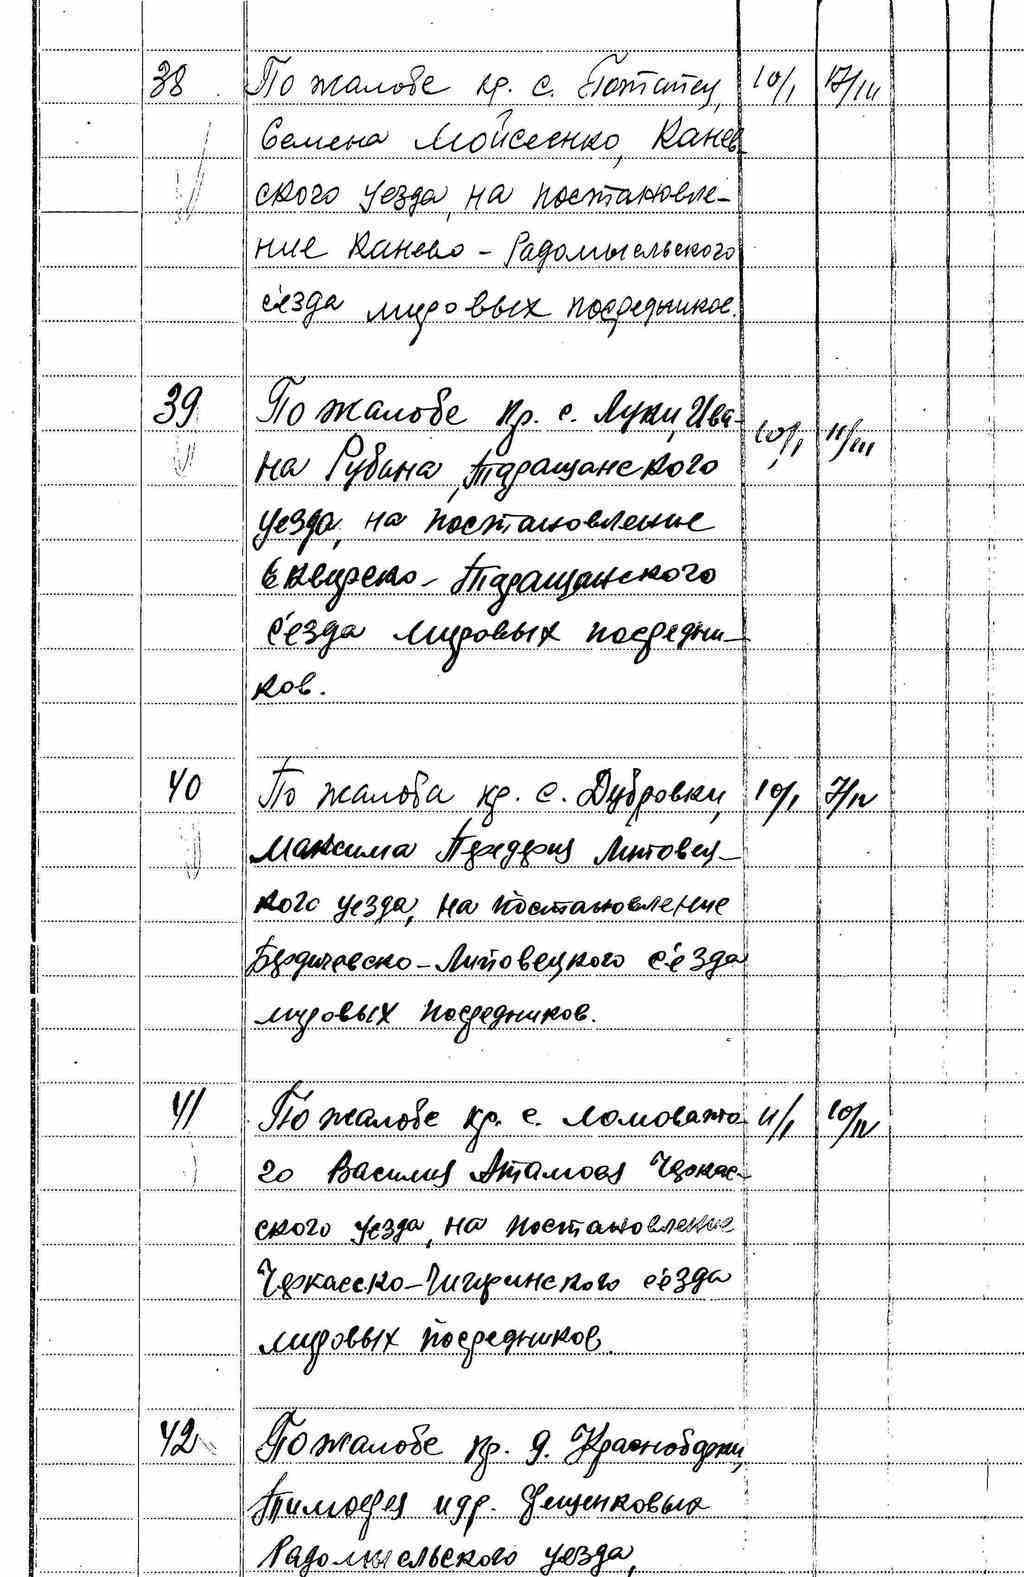 38 По жалобе кр. с. Потапец, 10/I 17/III
Семена Мойсеенко, Канев-
ского уезда, на постановле-
ние Канево-Радомысльского
с'езда мировых посредников.
39 По жалобе кр. с. Луки, Ива- 10/I 11/III
на Рубана, Таращанского
уезда, на постановление
Сквирско-Таращанского
с'езда мировых посредни-
ков.
40 По жалоба кр. с. Дубровки, 10/I 7/IV
Максима Передрия Липовец-
кого уезда, на постановление
Бердичевско-Липовецкого с'езда
мировых посредников.
41 По жалобе кр. с. Ломовато- 11/I 10/IV
го Василия Аталова Черкас-
ского уезда, на постановление
Черкасско-Чигиринского с'езда
мировых посредников.
42 По жалобе кр. д. Красноборки,
Тимофея и др. Ещенковых
Радомысльского уезда,